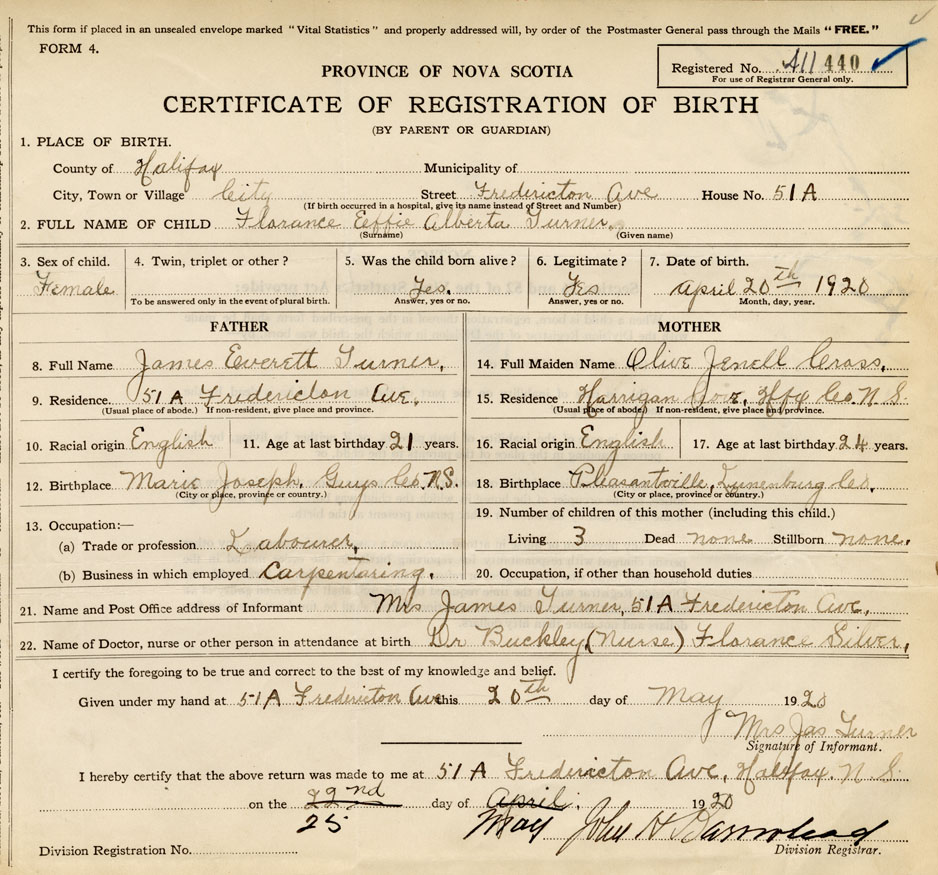 This form if placed in an unsealed envelope marked "Vital Statistics" and properly addressed will, by order of the Postmaster General pass through the Mails "FREE."
FORM 4.
Registered No. A11 440
For use of Registrar General only.
PROVINCE OF NOVA SCOTIA
CERTIFICATE OF REGISTRATION OF BIRTH
(BY PARENT OR GUARDIAN)
1. PLACE OF BIRTH.
County of Halifax Municipality of
City, Town or Village City Street Fredericton Ave House No. 51A
(If birth occurred in a hospital, give its name instead of Street and Number)
2. FULL NAME OF CHILD Florance Eeffie Alberta Turner.
(Surname) (Given name)
3. Sex of child. Female
4. Twin, triplet or other?
To be answered only in the event of plural birth.
5. Was the child born alive? Yes.
Answer, yes or no.
6. Legitimate? Yes
Answer, yes or no.
7. Date of birth. April 20th 1920
Month, day, year.
FATHER
8. Full Name James Everett Turner,
9. Residence. 51A Fredericton Ave.
(Usual place of abode.) If non-resident, give place and province.
10. Racial origin English 11. Age at last birthday 21 years.
12. Birthplace Marie Joseph, Guys Co. N.S.
(City or place, province or country.)
13. Occupation:—
(a) Trade or profession Labourer,
(b) Business in which employed Carpentaring.
MOTHER
14. Full Maiden Name Olive Jenell Cross,
15. Residence Harrigan Cove, Hfx Co. N.S.
(Usual place of abode.) If non-resident, give place and province.
16. Racial origin English 17. Age at last birthday 24 years.
18. Birthplace Pleasantville, Lunenburg Co,
(City or place, province or country.)
19. Number of children of this mother (including this child.)
Living 3 Dead none Stillborn none.
20. Occupation, if other than household duties
21. Name and Post Office address of Informant Mrs James Turner, 51A Fredericton Ave,
22. Name of Doctor, nurse or other person in attendance at birth Dr Buckley, (Nurse) Florance Silver,
I certify the foregoing to be true and correct to the best of my knowledge and belief.
Given under my hand at 51A Fredericton Ave this 20th day of May 1920
Mrs Jas Turner
Signature of Informant.
I hereby certify that the above return was made to me at 51A Fredericton Ave, Halifax. N.S.
on the 22nd day of April, 1920
25 May John H Barnstead
Division Registration No. Division Registrar.